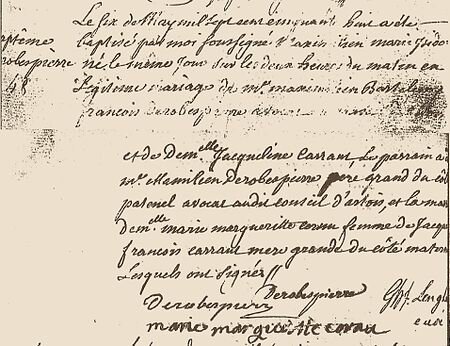 Le six de May mil sept cent cinquant huit a été
ptême baptisé par moi soussigné Maximilien marie Isido
obespierre né le même jour sur les deux heures du matin en
48 Légitime mariage de Mr. maximilien Barthelemi
françois Derobespierre avocat
et de Demelle Jacqueline Carraut, Le parrain a
mr. Maximilien Derobespierre pere grand du cot
paternel avocat audit conseil d'artois, et la mar
Demelle marie margueritte cornu femme de Jacq
francois carraut mere grande du côté matern
Lesquels ont signés //
Derobespierre Derobespierre Lengl
marie margueritte cornu